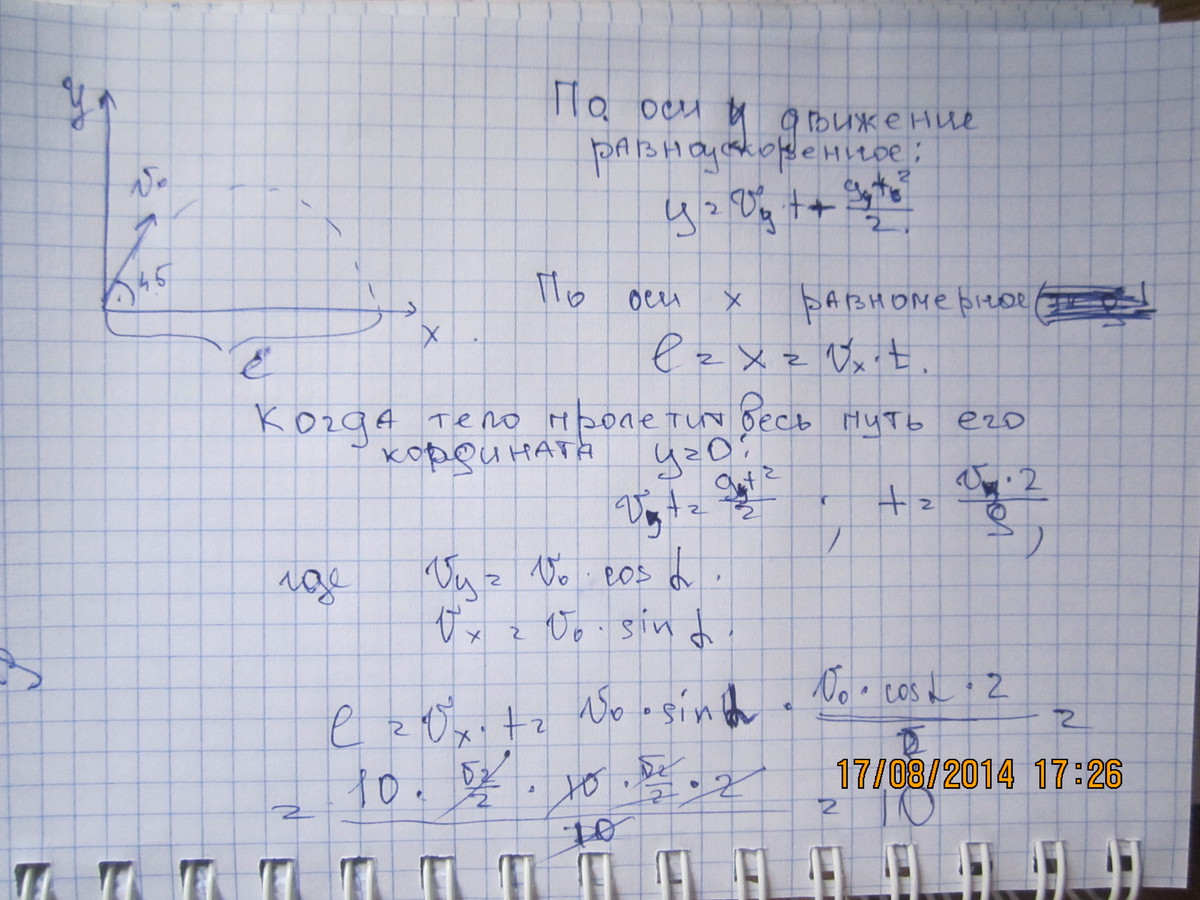 y
По оси y движение
равноускоренное:
v₀
y = v_y t + g_y t₀²/2.
45
По оси x равномерное
x
l = x = vₓ · t.
l
Когда тело пролетит весь путь его
кордината y=0:
v_y t = gt²/2 ; t = v_y · 2/g ,
где v_y = v₀ · cos α.
vₓ = v₀ · sin α.
l = vₓ · t = v₀ · sin α · v₀ · cos α · 2/g =
17/08/2014 17:26
= 10 · √2/2 · 10 · √2/2 · 2/10 = 10